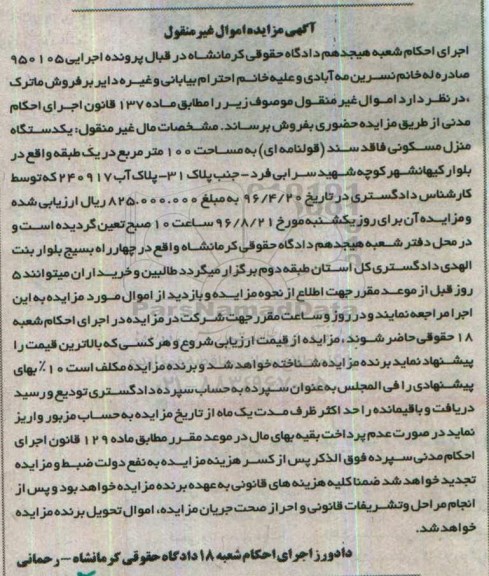 آگهی مزایده اموال غیر منقول
اجرای احکام شعبه هیجدهم دادگاه حقوقی کرمانشاه در قبال پرونده اجرایی ۹۵۰۱۰۵
صادره له خانم نسرین مه آبادی و علیه خانم احترام بیابانی و غیره دایر بر فروش ماترک
،در نظر دارد اموال غیر منقول موصوف زیر را مطابق ماده ۱۳۷ قانون اجرای احکام
مدنی از طریق مزایده حضوری بفروش برساند. مشخصات مال غیر منقول: یکدستگاه
منزل مسکونی فاقد سند (قولنامه ای) به مساحت ۱۰۰ متر مربع در یک طبقه واقع در
بلوار کیهانشهر کوچه شهید سرابی فرد-جنب پلاک ۳۱-پلاک آب ۲۴۰۹۱۷ که توسط
کارشناس دادگستری در تاریخ ۹۶/۴/۲۰ به مبلغ ۸۲۵.۰۰۰.۰۰۰ ریال ارزیابی شده
و مزایده آن برای روز یکشنبه مورخ ۹۶/۸/۲۱ ساعت ۱۰ صبح تعین گردیده است و
در محل دفتر شعبه هیجدهم دادگاه حقوقی کرمانشاه واقع در چهارراه بسیج بلوار بنت
الهدی دادگستری کل استان طبقه دوم برگزار میگردد طالبین و خریداران میتوانند ۵
روز قبل از موعد مقرر جهت اطلاع از نحوه مزایده و بازدید از اموال مورد مزایده به این
اجرا مراجعه نمایند و در روز و ساعت مقرر جهت شرکت در مزایده در اجرای احکام شعبه
۱۸ حقوقی حاضر شوند، مزایده از قیمت ارزیابی شروع و هر کسی که بالاترین قیمت را
پیشنهاد نماید برنده مزایده شناخته خواهد شد و برنده مزایده مکلف است ۱۰٪ بهای
پیشنهادی را فی المجلس به عنوان سپرده به حساب سپرده دادگستری تودیع و رسید
دریافت و باقیمانده را حداکثر ظرف مدت یک ماه از تاریخ مزایده به حساب مزبور واریز
نماید در صورت عدم پرداخت بقیه بهای مال در موعد مقرر مطابق ماده ۱۲۹ قانون اجرای
احکام مدنی سپرده فوق الذکر پس از کسر هزینه مزایده به نفع دولت ضبط و مزایده
تجدید خواهد شد ضمنا کلیه هزینه های قانونی به عهده برنده مزایده خواهد بود و پس از
انجام مراحل و تشریفات قانونی و احراز صحت جریان مزایده، اموال تحویل برنده مزایده
خواهد شد.
دادورز اجرای احکام شعبه ۱۸ دادگاه حقوقی کرمانشاه - رحمانی